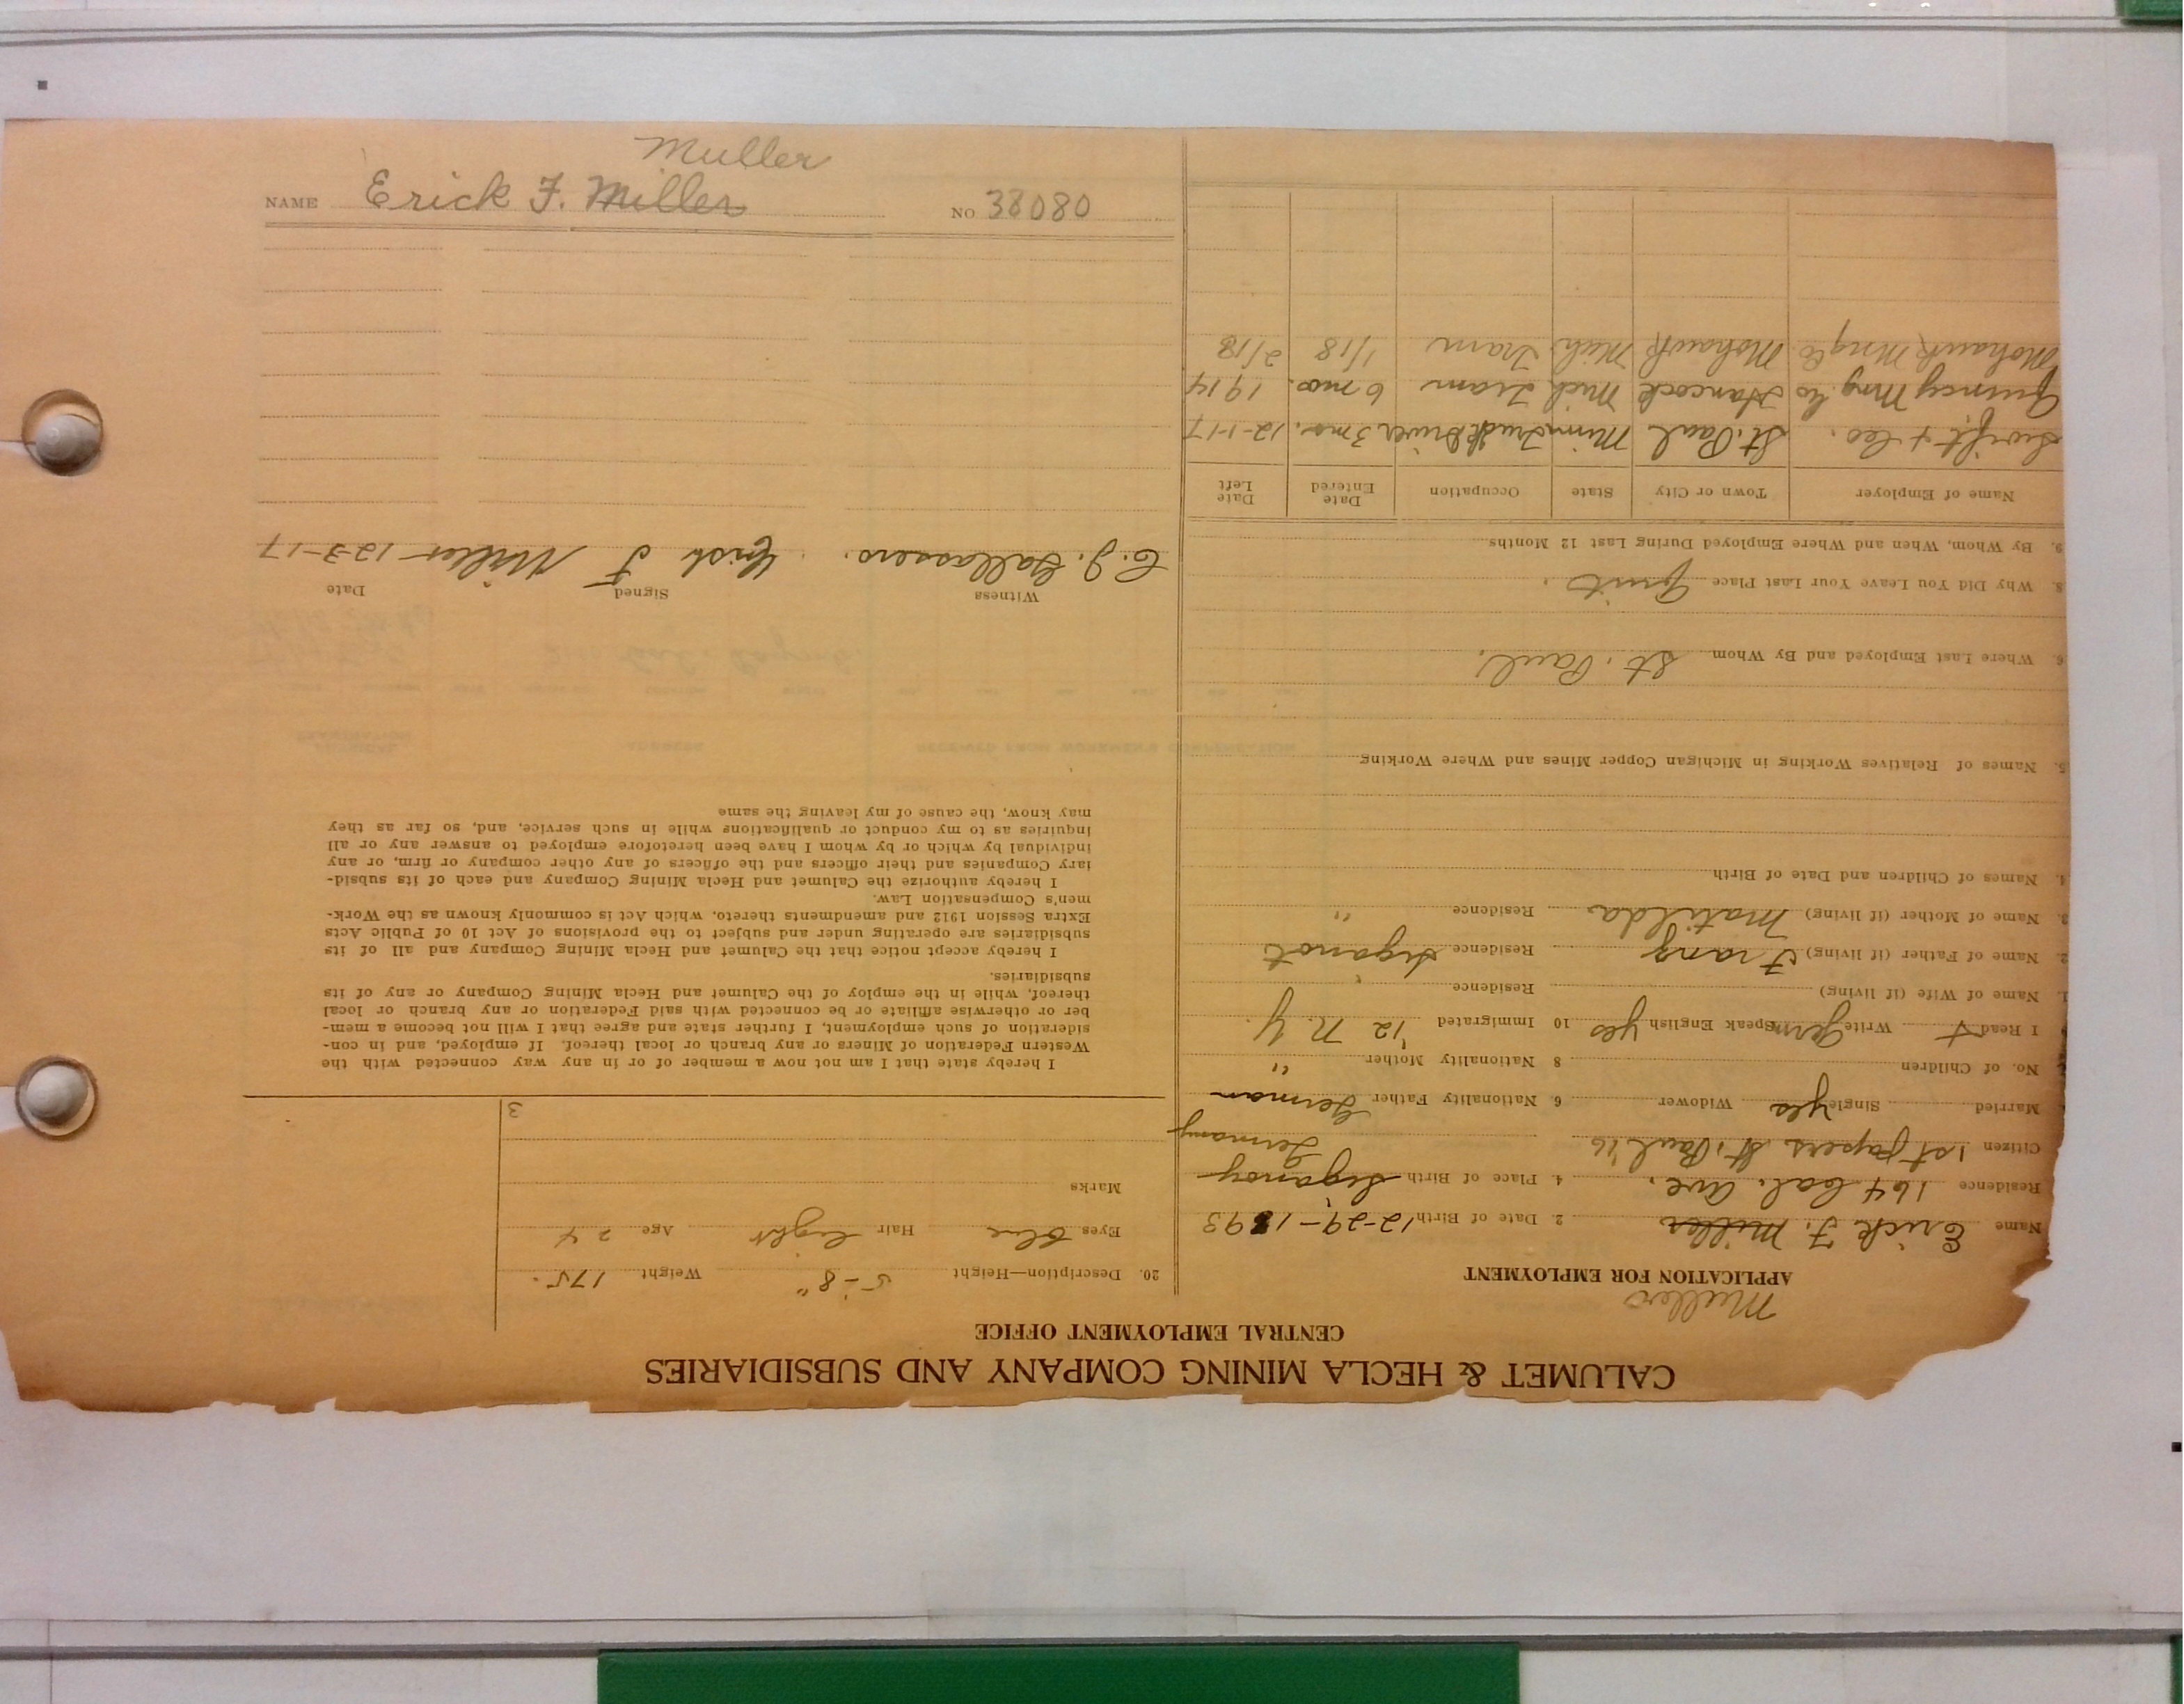 CALUMET & HECLA MINING COMPANY AND SUBSIDIARIES
CENTRAL EMPLOYMENT OFFICE
Muller
APPLICATION FOR EMPLOYMENT
Name Erick F. Miller 2. Date of Birth 12-29-1893
Residence 164 Cal. Ave. 4. Place of Birth
Germany
Citizen 1st papers St. Paul '16
Married Single yes Widower 6. Nationality Father German
No. of Children 8 Nationality Mother "
I Read Write Germ Speak English yes 10 Immigrated '12 N.Y.
1. Name of Wife (if living) Residence
2. Name of Father (if living) Franz Residence
3. Name of Mother (if living) Matilda Residence "
4. Names of Children and Date of Birth
5. Names of Relatives Working in Michigan Copper Mines and Where Working
6. Where Last Employed and By Whom St. Paul.
8. Why Did You Leave Your Last Place Quit.
9. By Whom, When and Where Employed During Last 12 Months
Name of Employer Town or City State Occupation Date Entered Date Left
Swift & Co. St. Paul Minn Truck Driver 3 mo. 12-1-17
Quincy Mng. Co Hancock Mich Tram 6 mos. 1914
Mohawk Mng Co. Mohawk Mich Tram 1/18 2/18
20. Description—Height 5-8" Weight 175.
Eyes blue Hair light Age 24
Marks
3
I hereby state that I am not now a member of or in any way connected with the
Western Federation of Miners or any branch or local thereof. If employed, and in con-
sideration of such employment, I further state and agree that I will not become a mem-
ber or otherwise affiliate or be connected with said Federation or any branch or local
thereof, while in the employ of the Calumet and Hecla Mining Company or any of its
subsidiaries.
I hereby accept notice that the Calumet and Hecla Mining Company and all of its
subsidiaries are operating under and subject to the provisions of Act 10 of Public Acts
Extra Session 1912 and amendments thereto, which Act is commonly known as the Work-
men's Compensation Law.
I hereby authorize the Calumet and Hecla Mining Company and each of its subsid-
iary Companies and their officers and the officers of any other company or firm, or any
individual by which or by whom I have been heretofore employed to answer any or all
inquiries as to my conduct or qualifications while in such service, and, so far as they
may know, the cause of my leaving the same
Witness Signed Date
Erich F Müller 12-3-17
Muller
NAME Erick F. Miller NO 38080